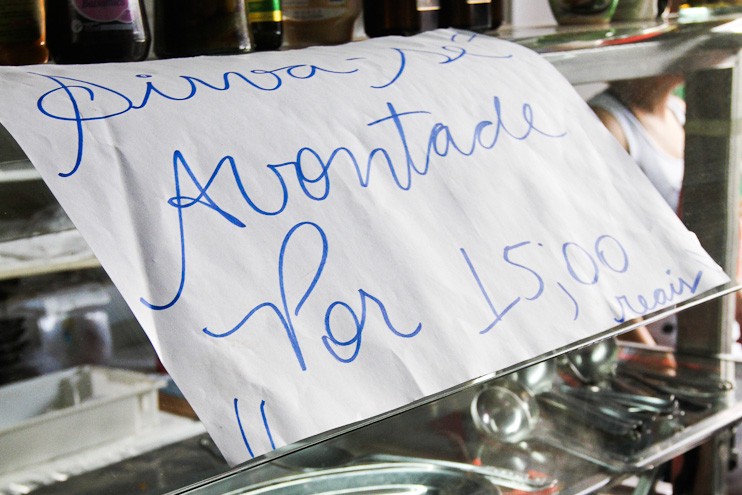 Sirva-se
Avontade
Por 15,00
reais
"